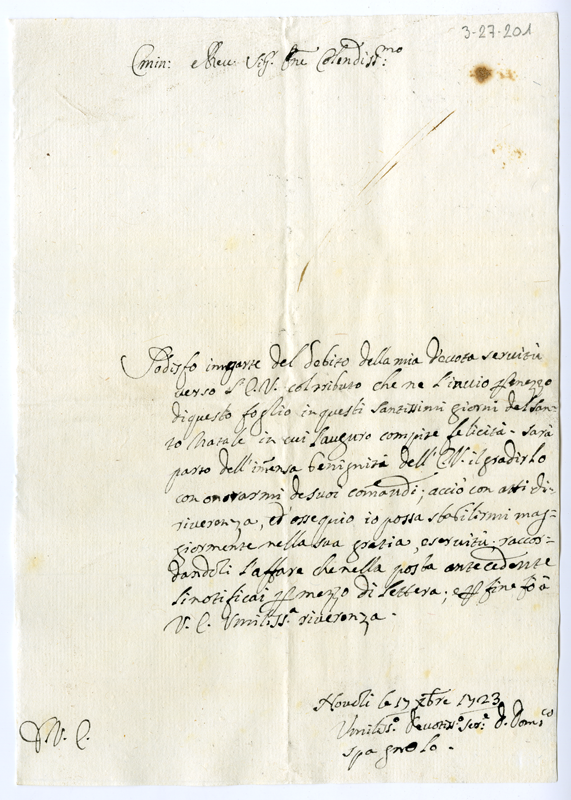 3-27-201
Emin: e Reu. Sig. Pne Colendiss:mo
Sodisfo in parte del debito della mia devota servitù
verso l'E.V. col tributo che ne l'invio per mezzo
di questo foglio in questi santissimi giorni del San-
to Natale in cui l'auguro compite felicità. sarà
parto dell'im̃ensa benignità dell'E.V. il gradirlo
con onorarmi de suoi comandi; acciò con atti di
riverenza, ed ossequio io possa stabilirmi mag-
giormente nella sua gratia, e servitù. raccor-
dandoli l'affare che nella posta antecedente
li notificai per mezzo di lettera; e per fine fò à
V. E. Umiliss.a riverenza.
Novoli le 17 Xbre 1723
Umiliss.o Devotiss.o Ser.e D. Dom.co
Spagnolo.
V. E.